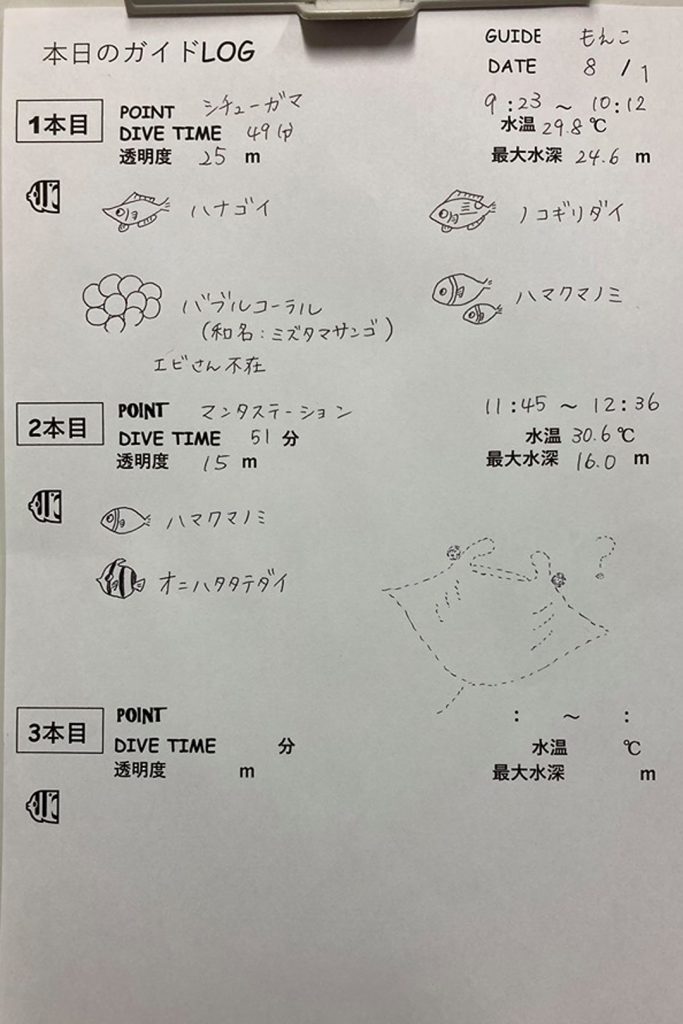 本日のガイドLOG
GUIDE もえこ
DATE 8 / 1
1本目
POINT シチューガマ
9:23 ～ 10:12
DIVE TIME 49(分)
水温 29.8℃
透明度 25 m
最大水深 24.6 m
ハナゴイ
ノコギリダイ
バブルコーラル
(和名:ミズタマサンゴ)
ハマクマノミ
エビさん不在
2本目
POINT マンタステーション
11:45 ～ 12:36
DIVE TIME 51 分
水温 30.6℃
透明度 15 m
最大水深 16.0 m
ハマクマノミ
オニハタタテダイ
?
3本目
POINT
: ～ :
DIVE TIME 分
水温 ℃
透明度 m
最大水深 m